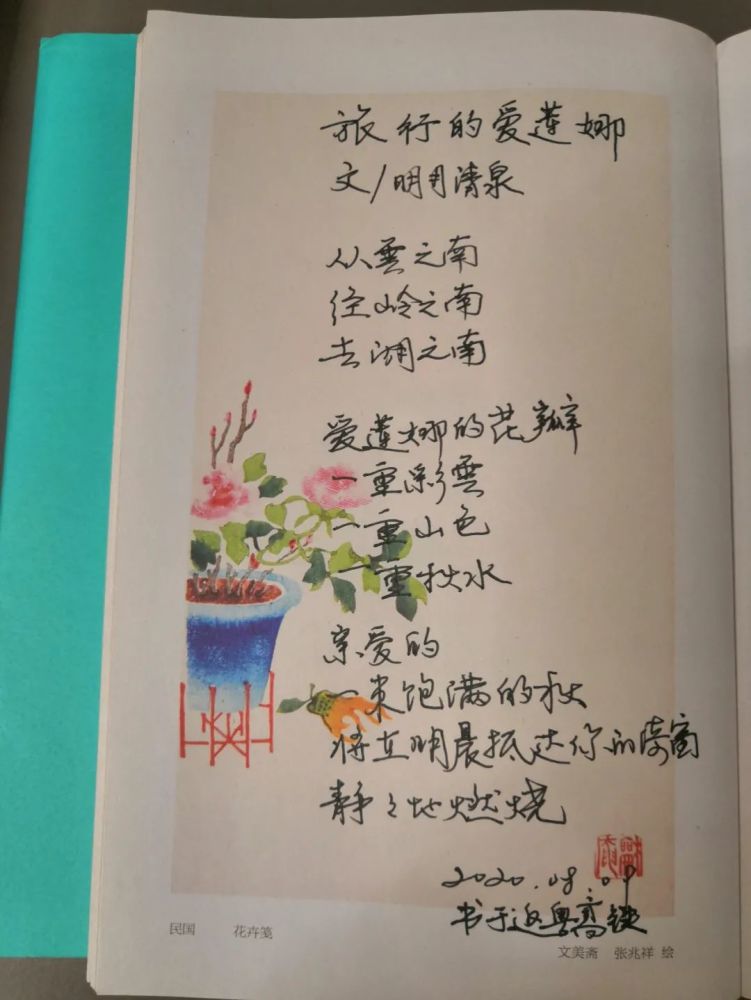 旅行的爱莲娜
文/明月清泉
从雲之南
经岭之南
去湖之南
爱莲娜的花瓣
一重彩雲
一重山色
一重秋水
亲爱的
一束饱满的秋
将在明晨抵达你的窗
静々地燃烧
2020.08.09
书于返粤高铁
民国 花卉笺
文美斋 张兆祥 绘